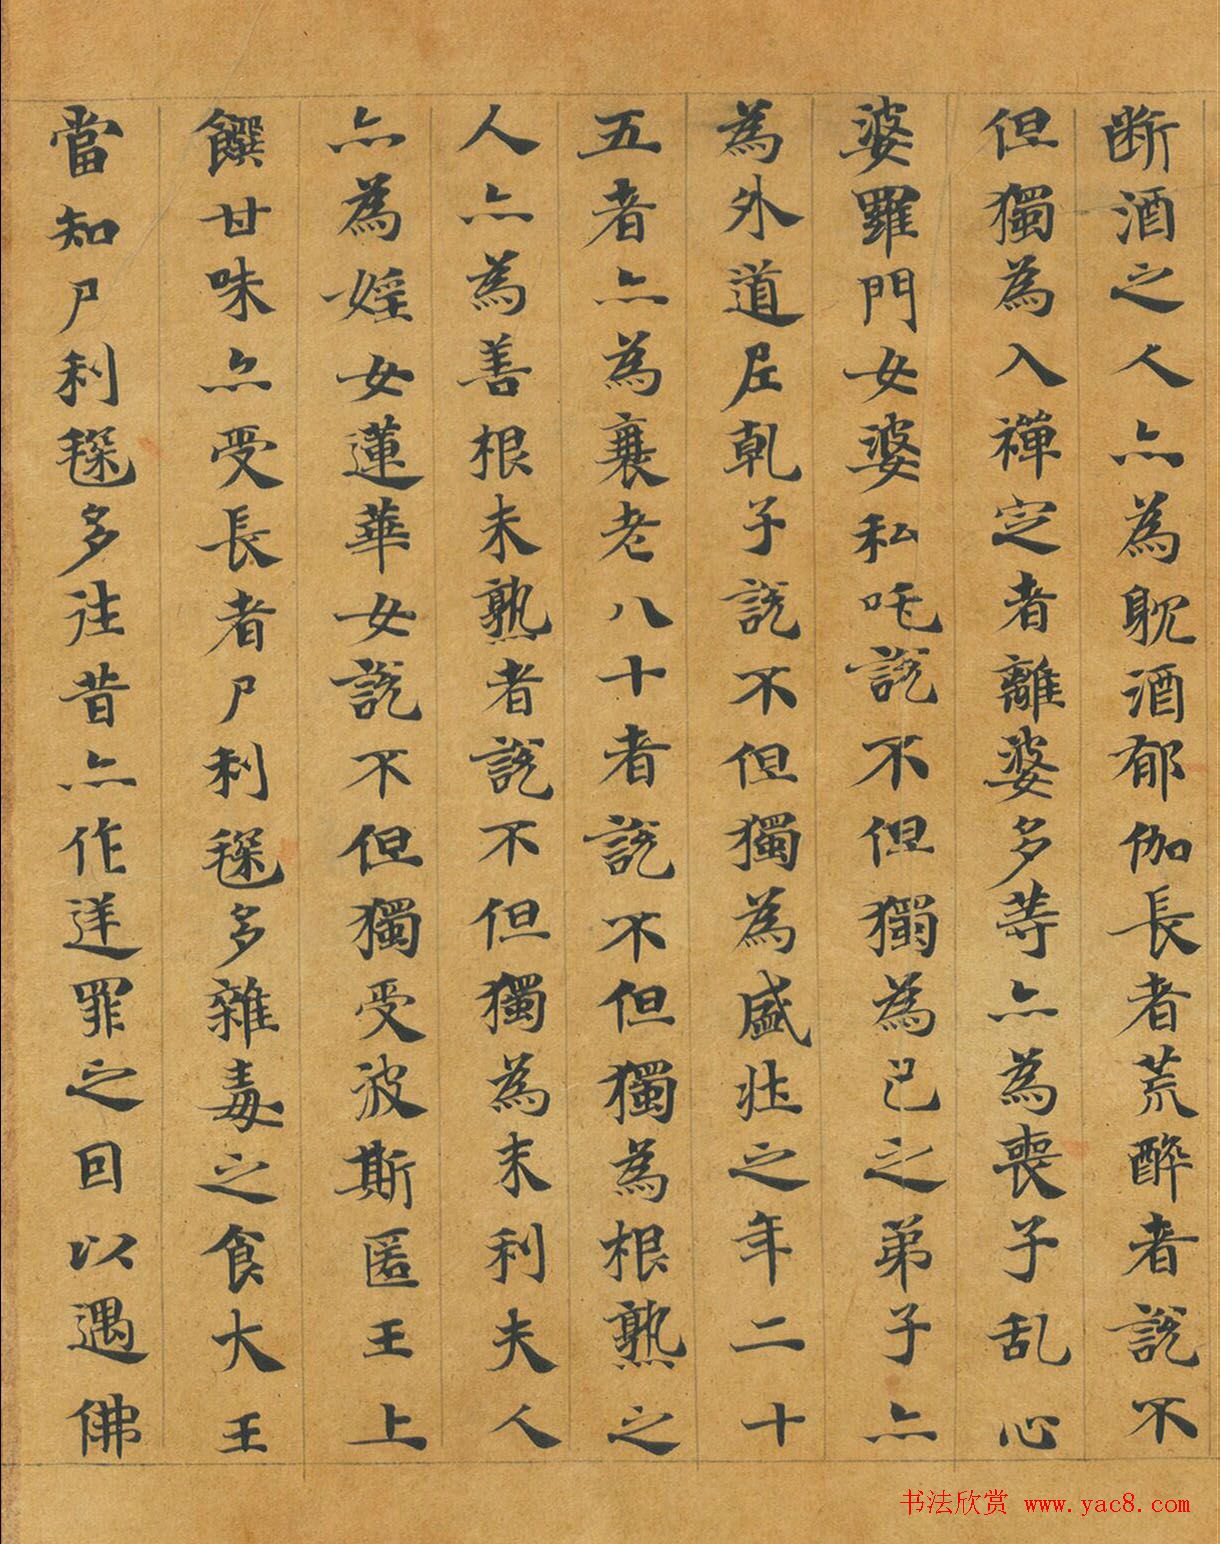 断酒之人亦為躭酒郁伽長者荒醉者説不
但獨為入禪定者離婆多等亦為喪子乱心
婆羅門女婆私吒説不但獨為己之弟子亦
為外道尼乾子説不但獨為盛壯之年二十
五者亦為衰老八十者説不但獨為根熟之
人亦為善根未熟者説不但獨為末利夫人
亦為婬女蓮華女説不但獨受波斯匿王上
饌甘味亦受長者尸利毱多雜毒之食大王
當知尸利毱多往昔亦作逆罪之因以遇佛
书法欣赏 www.yac8.com